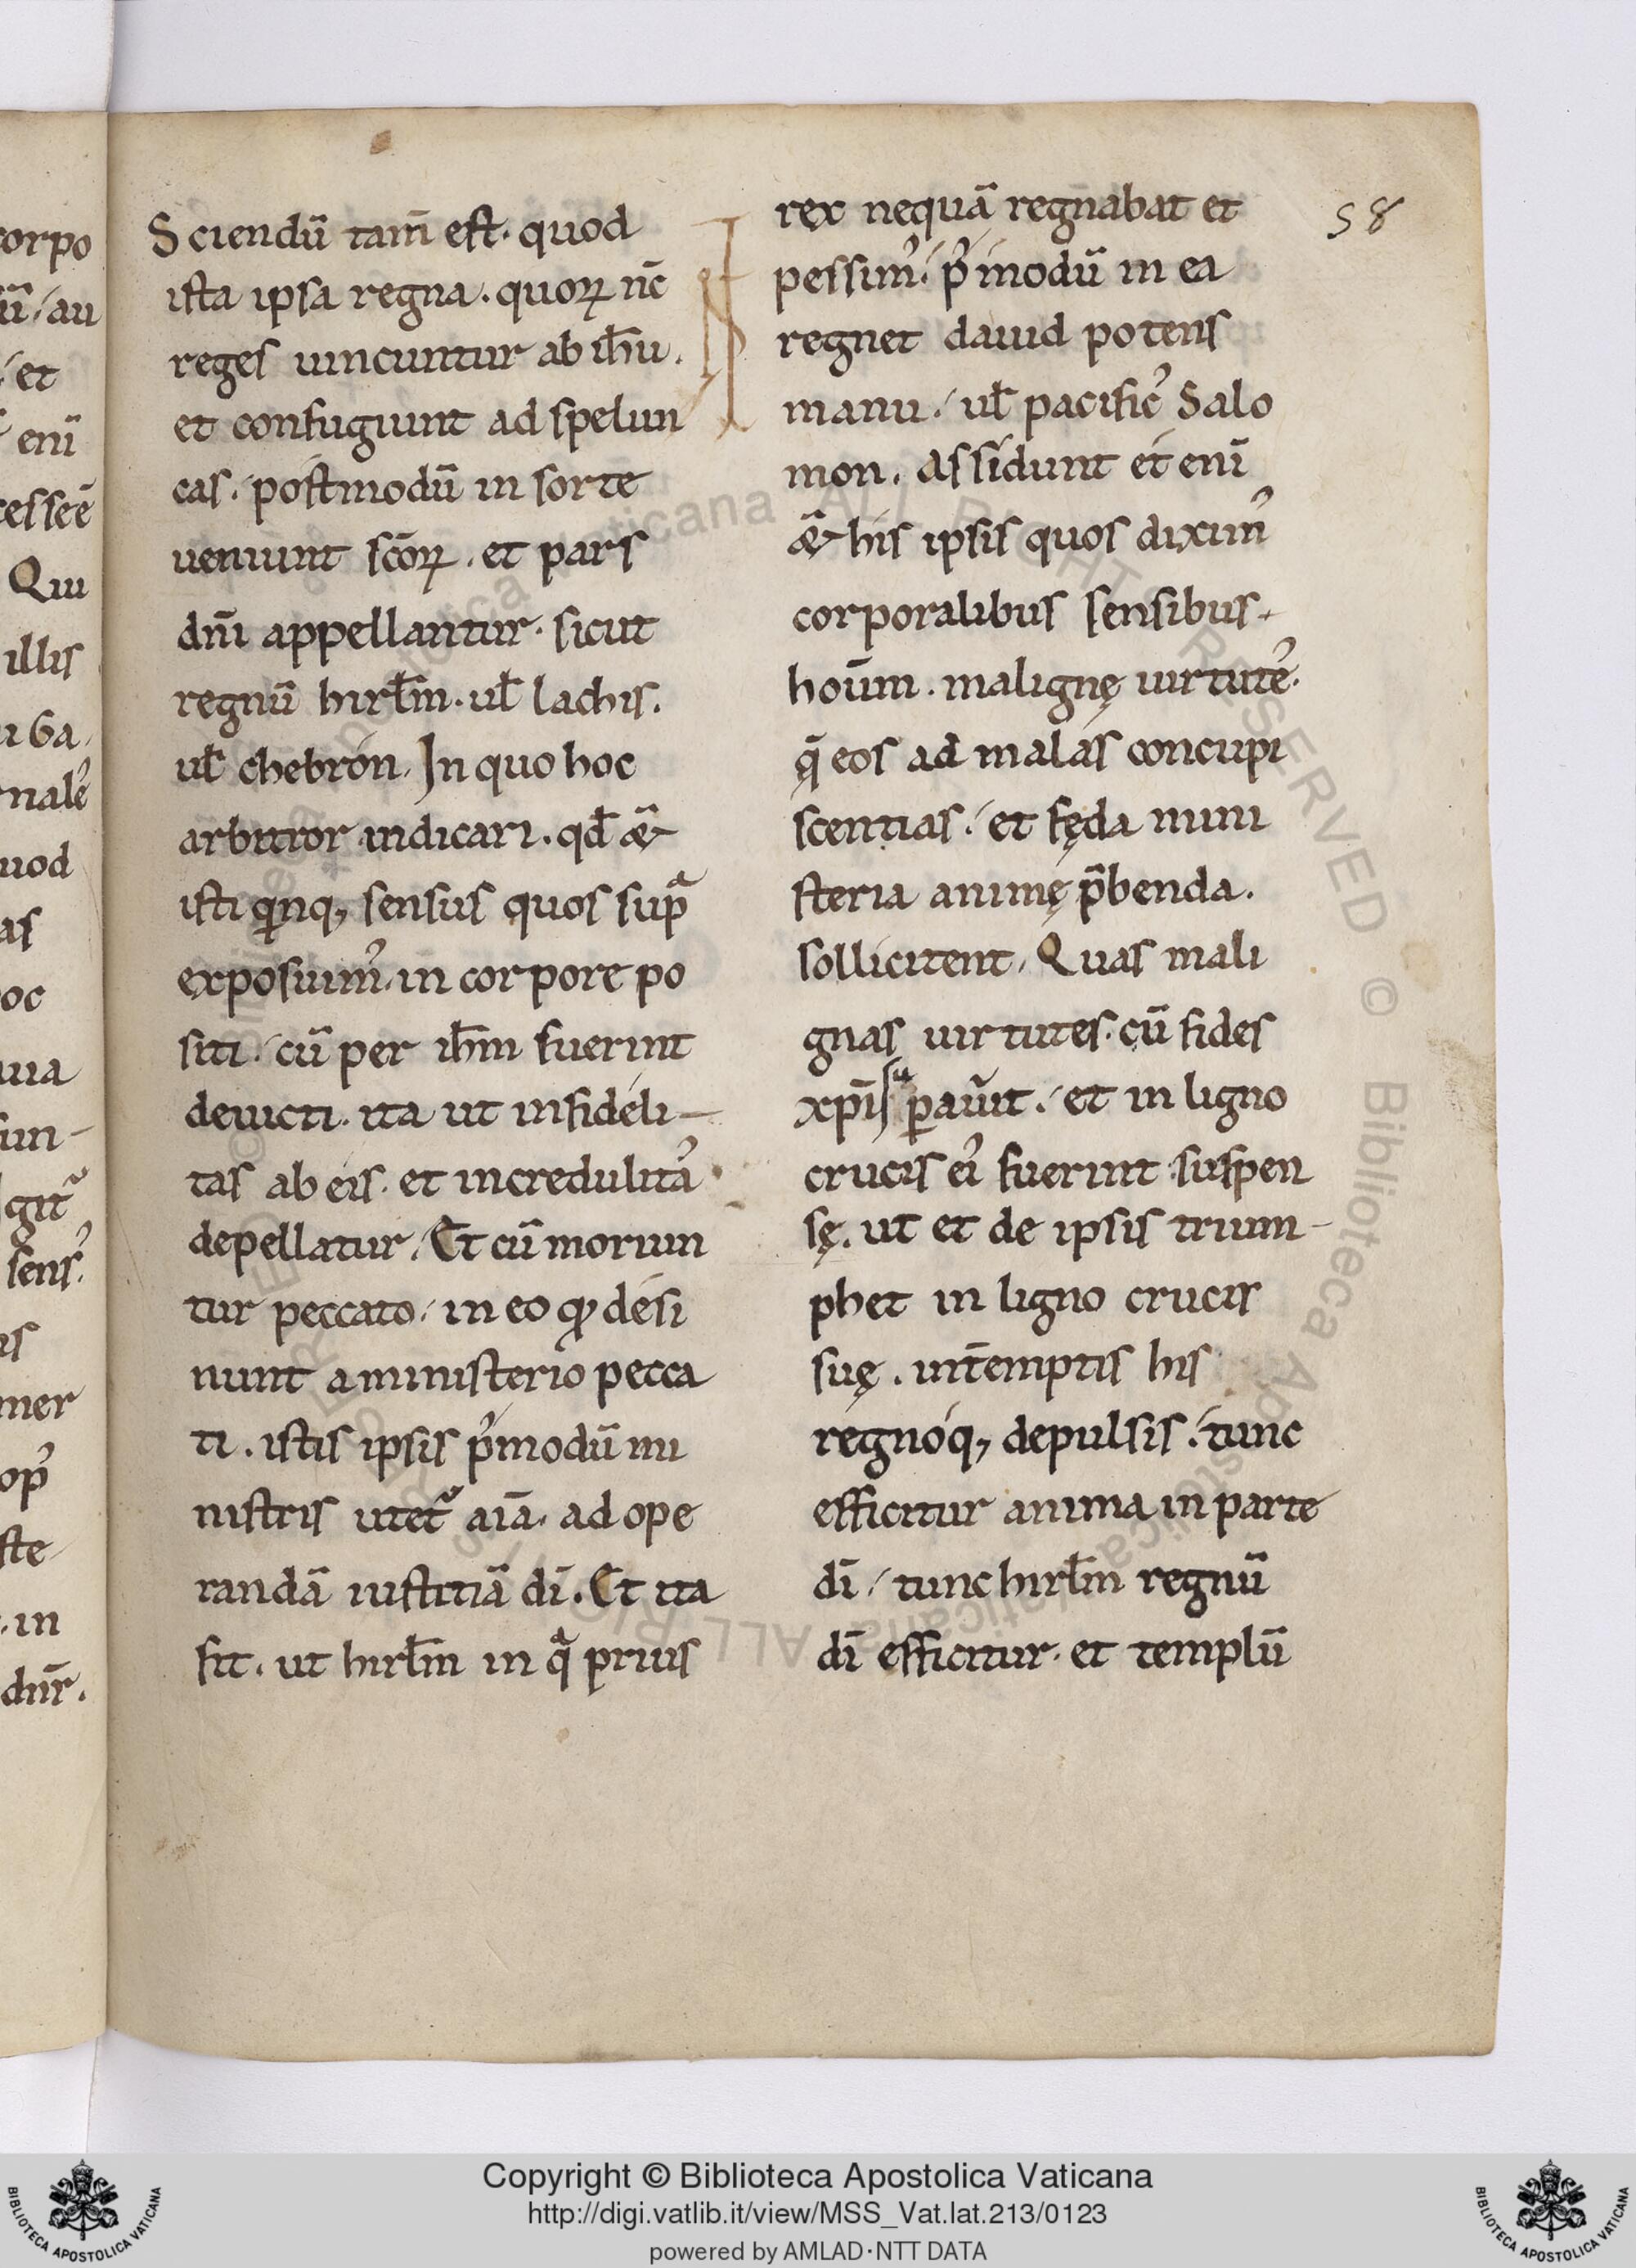 corpo
ũ / au
/ et
enĩ
cesseẽ
Qui
illis
u Ga
nalẽ
uod
as
oc
uia
sun-
git᷑
sensʼ
is
mer
opʼ
ste
in
dn̄r.
Sciendũ tam̄ est. quod
ista ipsa regna. quoꝝ nc̄
reges uincuntur ab ih̄u.
et confugiunt ad spelun
cas. postmodũ in sorte
ueniunt sc̄oꝝ. et pars
dn̄i appellantur. sicut
regnũ hirłm. uł lachis.
uł chebron. In quo hoc
arbitror indicari. qd̄ &̃
isti qͥnq; sensus quos supᵃ
exposuimʼ. in corpore po
siti. cũ per ih̄m fuerint
deuicti. ita ut infideli-
tas ab eis. et incredulitãʼ
depellatur. Et cũ moriun
tur peccato. in eo ꝙ desi
nunt a ministerio pecca
ti. istis ipsis pʼmodũ mi
nistris utet᷑ aiā. ad ope
randã iustitiã dī. Et ita
fit. ut hirłm in qᵃ prius
rex nequã regnabat et
pessimʼ. pʼmodũ in ea
regnet dauid potens
manu. uł pacificʼ Salo
mon. Assidunt ei enĩ
&̃ his ipsis quos diximʼ
corporalibus sensibus.
hoūm. malignę uirtuteʼ.
q̄ eos ad malas concupi
scentias. et fęda mini
steria animę p̄benda.
sollicitent. Quas mali
gnas uirtutes. cũ fides
xp̄i suꝑauīt. et in ligno
crucis eiʼ fuerint suspen
sę. ut et de ipsis trium-
phet in ligno crucis
suę. int̄emptis his
regnoq; depulsis. tunc
efficitur anima in parte
dī. tunc hirłm regnũ
dī efficitur. et templũ
58
Copyright © Biblioteca Apostolica Vaticana
http://digi.vatlib.it/view/MSS_Vat.lat.213/0123
powered by AMLAD·NTT DATA
BIBLIOTECA APOSTOLICA VATICANA
BIBLIOTECA APOSTOLICA VATICANA